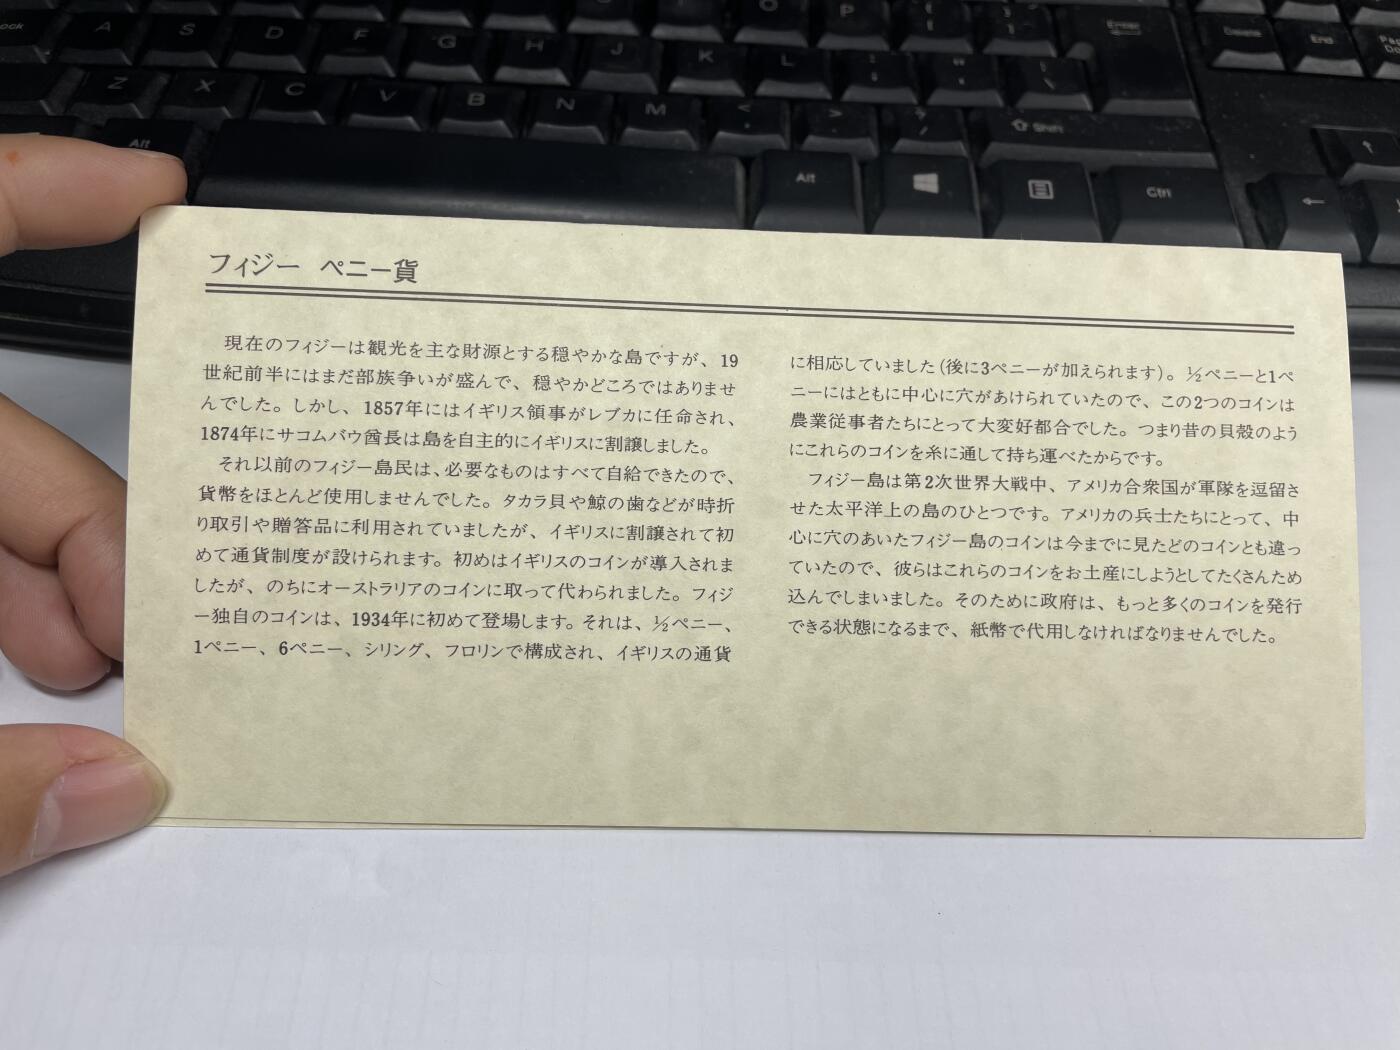 lock
A
S
D
F
G
H
J
K
L
O
P
Enter
Delete
End
Z
X
C
V
B
N
M
Shift
Alt
Alt
Ctrl
フィジー ペニー貨
現在のフィジーは観光を主な財源とする穏やかな島ですが、19
世紀前半にはまだ部族争いが盛んで、穏やかどころではありませ
んでした。しかし、1857年にはイギリス領事がレブカに任命され、
1874年にサコムバウ酋長は島を自主的にイギリスに割譲しました。
それ以前のフィジー島民は、必要なものはすべて自給できたので、
貨幣をほとんど使用しませんでした。タカラ貝や鯨の歯などが時折
り取引や贈答品に利用されていましたが、イギリスに割譲されて初
めて通貨制度が設けられます。初めはイギリスのコインが導入されま
したが、のちにオーストラリアのコインに取って代わられました。フィジ
ー独自のコインは、1934年に初めて登場します。それは、½ペニー、
1ペニー、6ペニー、シリング、フロリンで構成され、イギリスの通貨
に相応していました(後に3ペニーが加えられます)。½ペニーと1ペ
ニーにはともに中心に穴があけられていたので、この2つのコインは
農業従事者たちにとって大変好都合でした。つまり昔の貝殻のよう
にこれらのコインを糸に通して持ち運べたからです。
フィジー島は第2次世界大戦中、アメリカ合衆国が軍隊を逗留さ
せた太平洋上の島のひとつです。アメリカの兵士たちにとって、中
心に穴のあいたフィジー島のコインは今までに見たどのコインとも違っ
ていたので、彼らはこれらのコインをお土産にしようとしてたくさんため
込んでしまいました。そのために政府は、もっと多くのコインを発行
できる状態になるまで、紙幣で代用しなければなりませんでした。